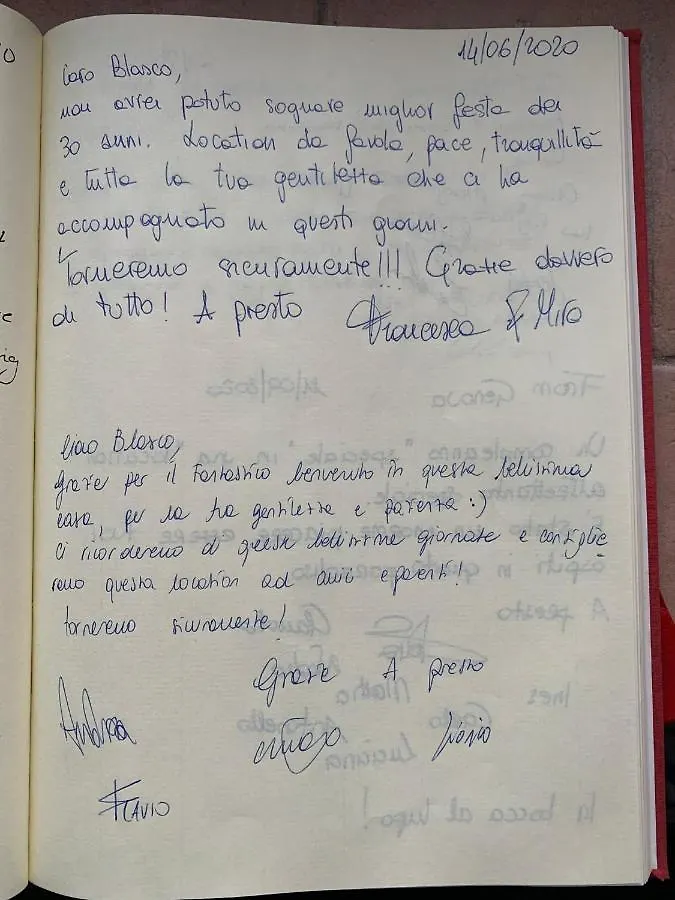 14/06/2020
Caro Blasco,
non avrei potuto sognare miglior festa dei
30 anni. Location da favola, pace, tranquillità
e tutta la tua gentilezza che ci ha
accompagnato in questi giorni.
Torneremo sicuramente!!! Grazie davvero
di tutto! A presto Francesca & Mira
Ciao Blasco,
grazie per il fantastico benvenuto in questa bellissima
casa, per la tua gentilezza e pazienza :)
Ci ricorderemo di queste bellissime giornate e consiglie
remo questa location ad amici e parenti!
torneremo sicuramente!
Grazie A presto
Andrea
Flavio